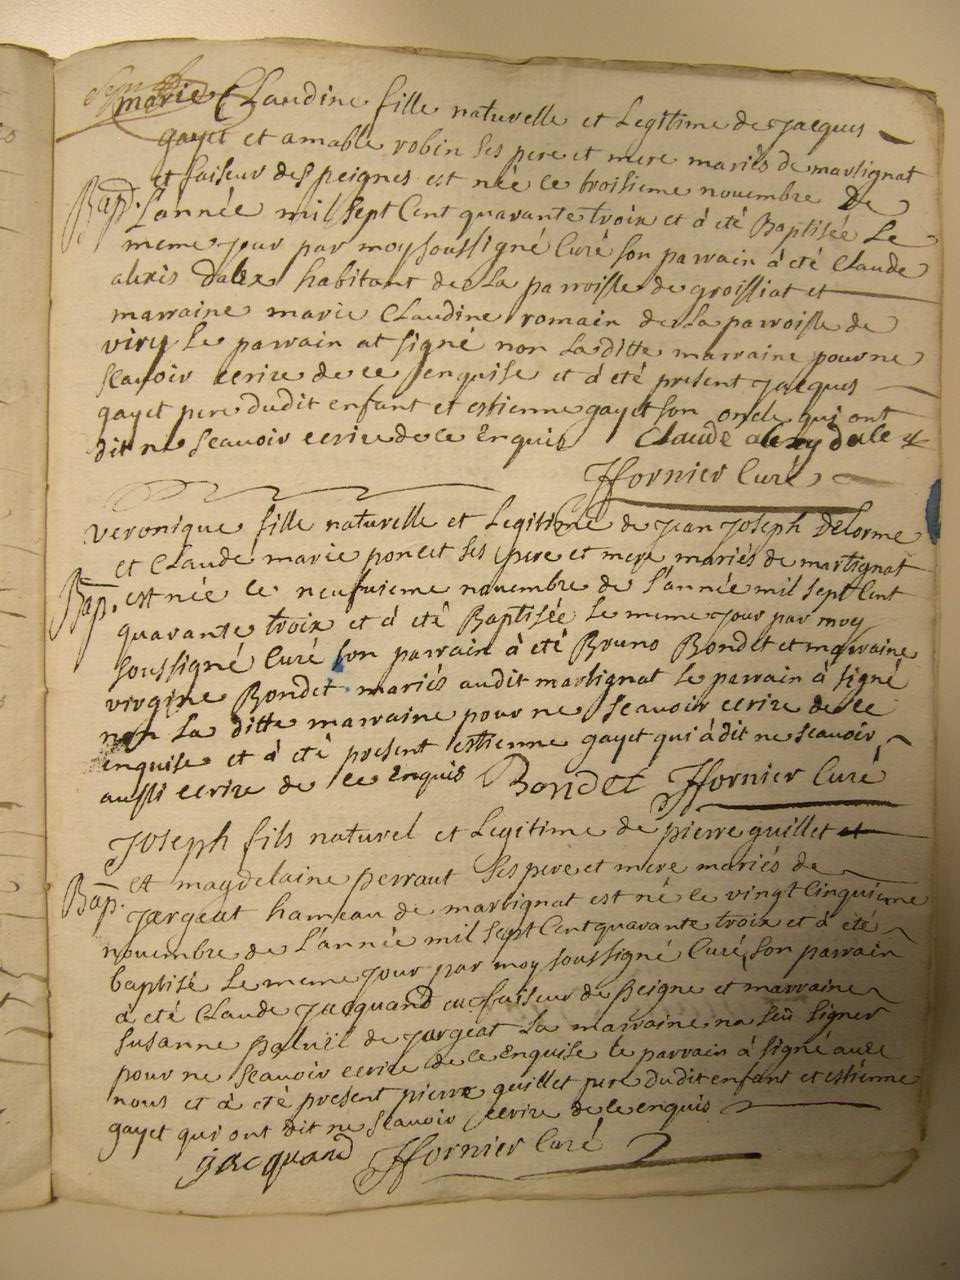 marie Claudine fille naturelle et Legitime de jacques
gayet et amable robin ses pere et mere mariés de martignat
et faiseur de peignes est née le troisieme nouembre De
Bap. L'année mil sept Cent quarante troix et à été Baptisée Le
meme jour par moy soussigné Curé son parrain à été Claude
alexis dalex habitant de La parroisse de groissiat et
marraine marie Claudine romain de La parroisse de
viry Le parrain at signé non La ditte marraine pour ne
scauoir ecrire de ce enquise et à été present jacques
gayet pere dudit enfant et estienne gayet son oncle qui ont
dit ne scauoir ecrire de ce Enquis Claude alexy dale
Ffornier Curé
veronique fille naturelle et Legitime de jean joseph deLorme
et Claude marie poncet ses pere et mere mariés de martignat
Bap. est née le neufuieme nouembre de L'année mil sept Cent
quarante troix et à été Baptisée Le meme jour par moy
soussigné Curé son parrain à été Bruno Bondet et marraine
virgine Bondet mariés audit martignat Le parrain à signé
non La ditte marraine pour ne scauoir ecrire de ce
enquise et à été present estienne gayet qui à dit ne scauoir
aussi ecrire de ce Enquis Bondet Ffornier Curé
Joseph fils naturel et Legitime de pierre guillet et
et magdelaine perraut ses pere et mere mariés de
Bap. jargeat hameau de martignat est né le vingt Cinquieme
nouembre de L'année mil sept Cent quarante troix et à été
baptisé Le meme jour par moy soussigné Curé, son parrain
à été Claude jacquand faiseur de peigne et marraine
susanne de jargeat La marraine na seû signer
pour ne scauoir ecrire de ce Enquise le parrain à signé auec
nous et à été present pierre guillet pere dudit enfant et estienne
gayet qui ont dit ne scauoir ecrire de ce enquis
jacquand Ffornier Curé